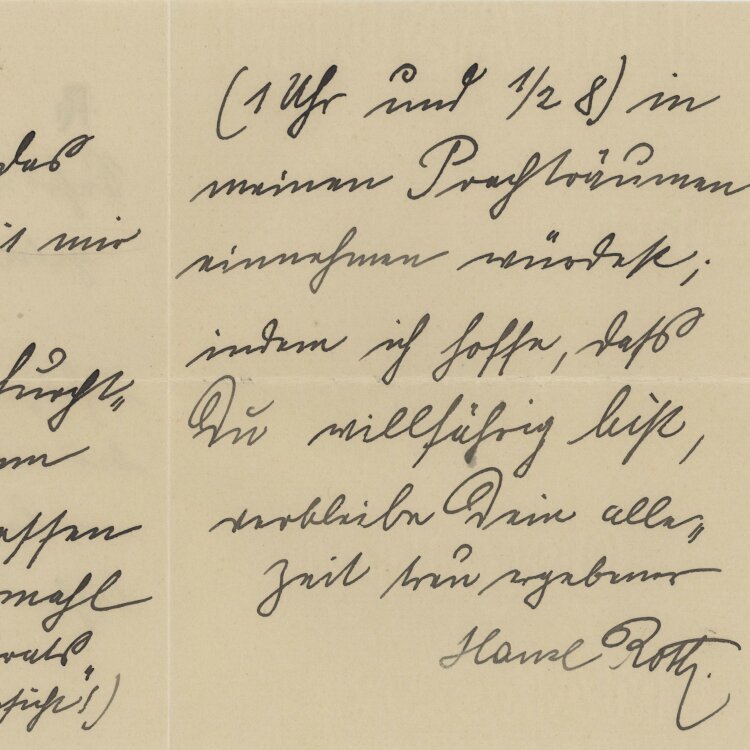 das
mir
furcht-
essen
mahl
(1 Uhr und 1/2 8) in
meinen Prachträumen
einnehmen würdest;
indem ich hoffe, daſs
Du willfährig bist,
verbleibe Dein alle-
zeit treu ergebener
Hansl Roth.